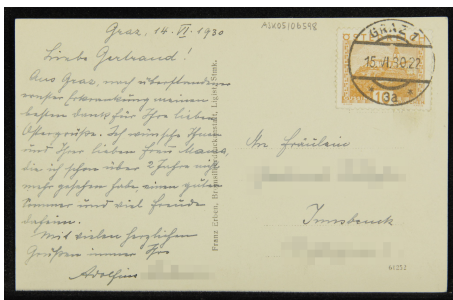 AK05106598
Graz, 14. VI. 1930
Liebe Gertraud!
Aus Graz, nach überstandener
ernster Erkrankung meinen
besten Dank für Ihre lieben
Ostergrüße. Ich wünsche Ihnen
und Ihrer lieben Frau Mama,
die ich schon über 2 Jahre nicht
mehr gesehen habe, einen guten
Sommer und viel Freude
daheim.
Mit vielen herzlichen
Grüßen immer Ihre
Adolfine
Franz Erben, Ligist, Stmk.
GRAZ 1
15.VI.30-22
*13a*
An Fräulein
Innsbruck
61252